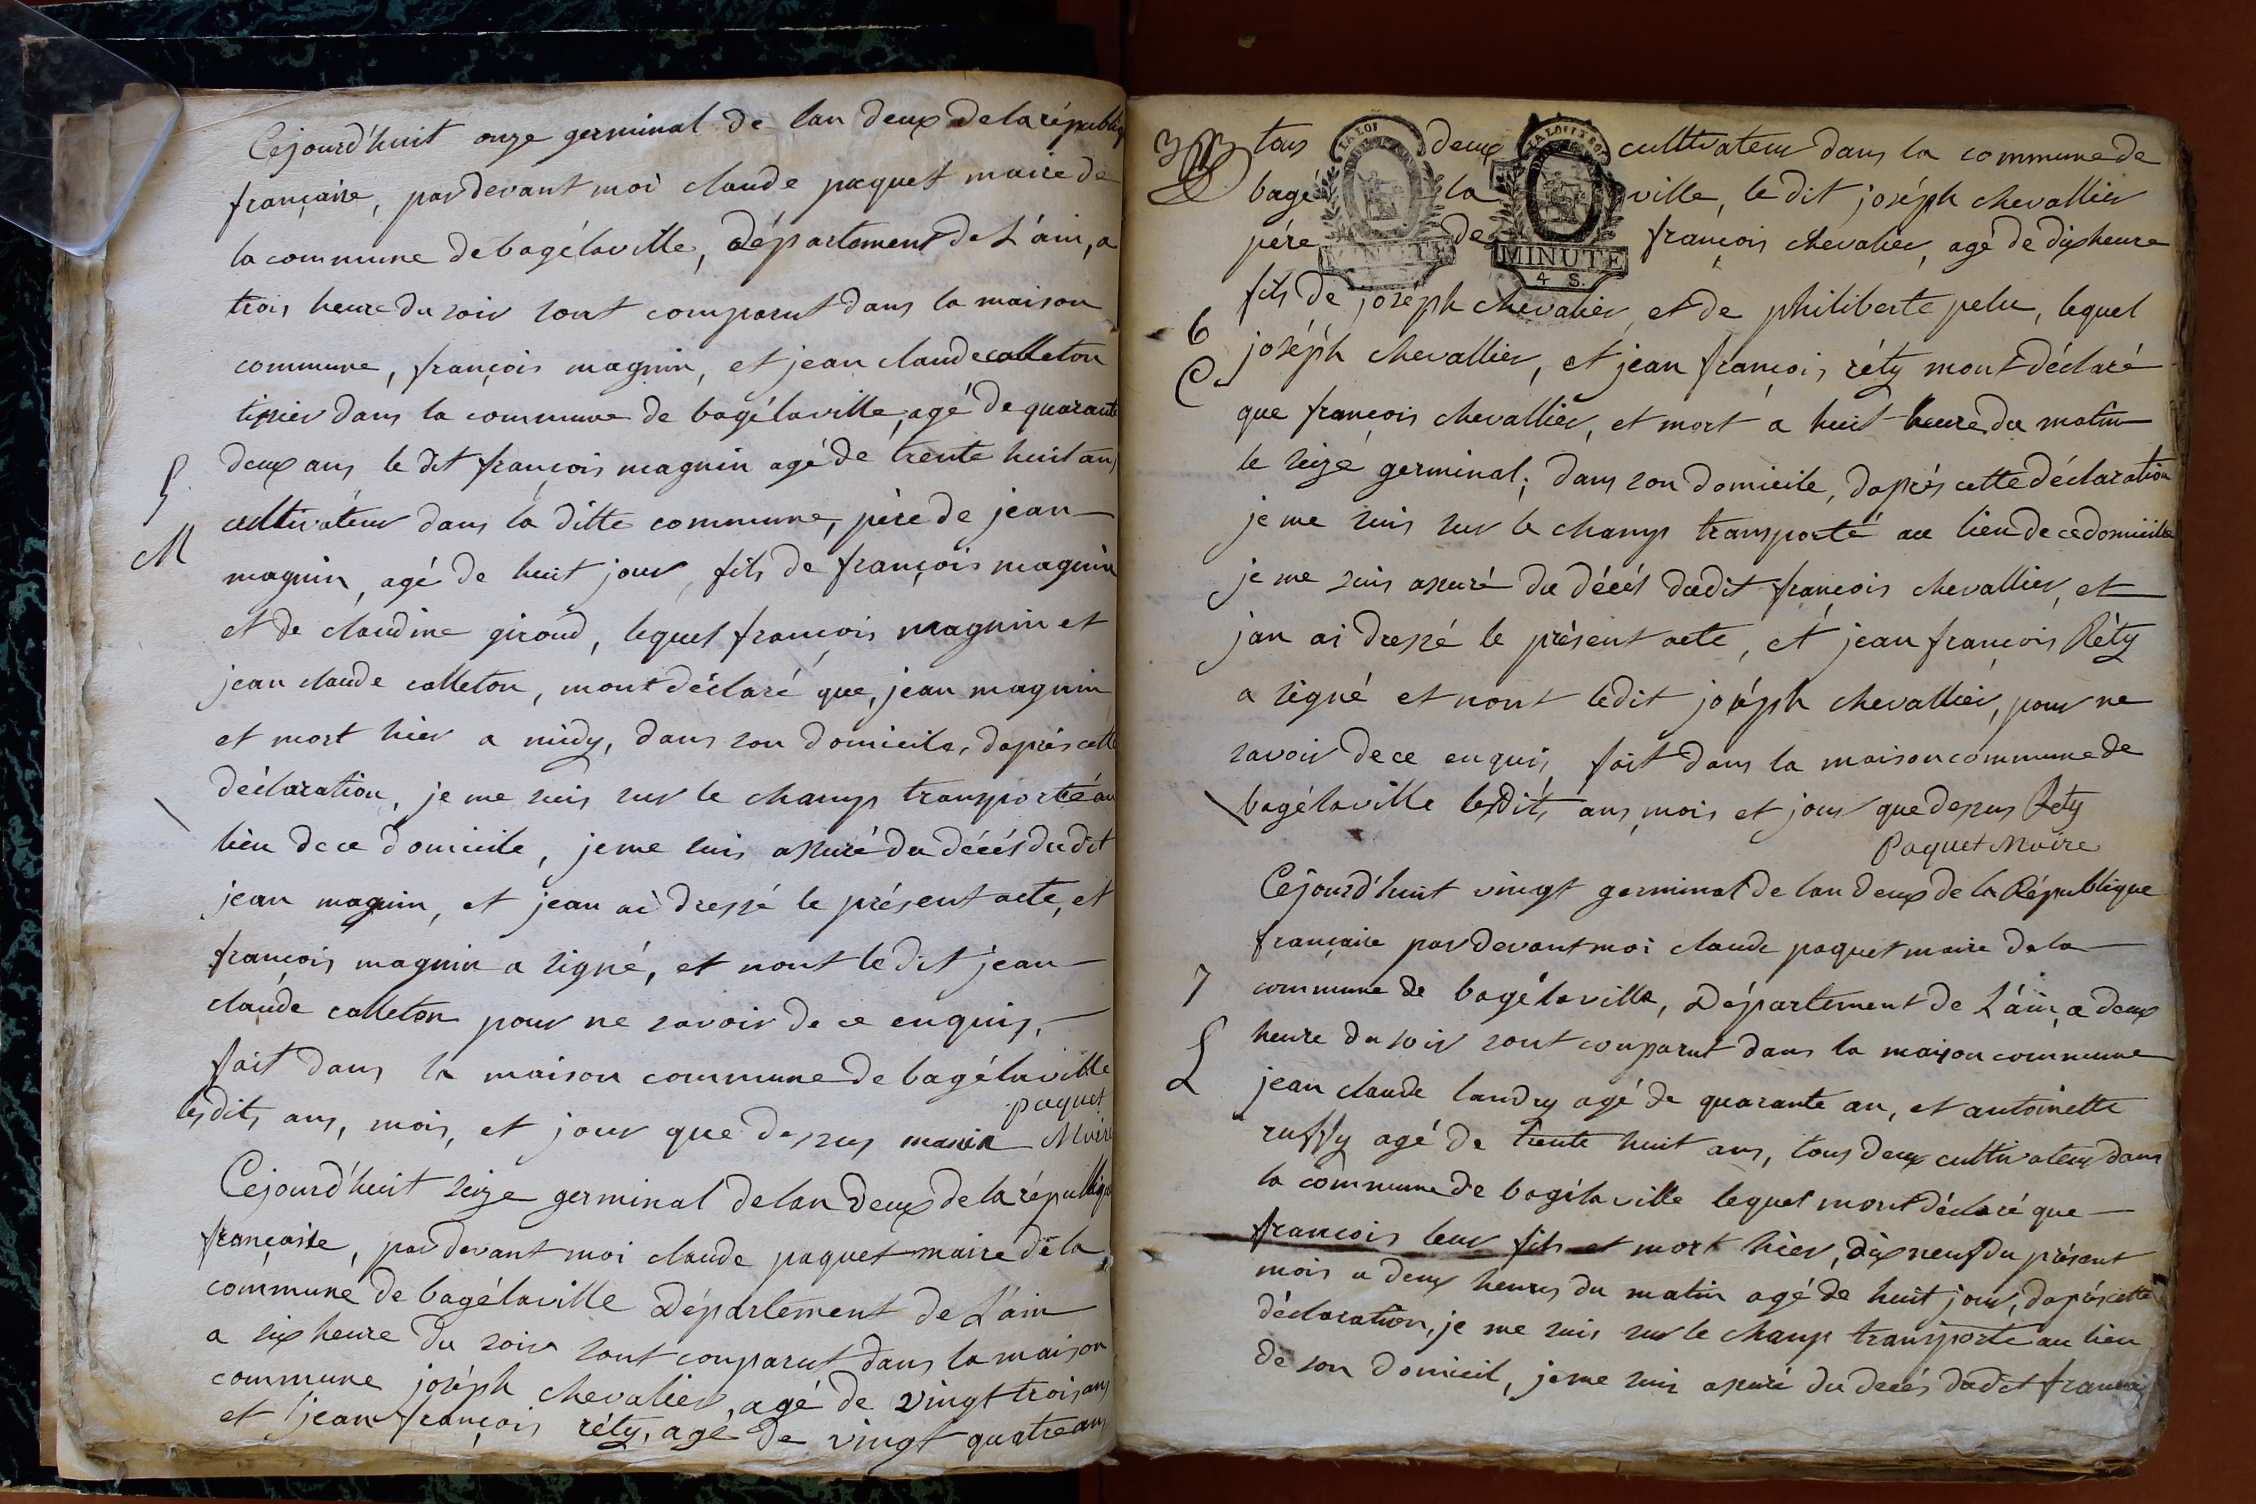 Cejourd'huit onze germinal de lan deux de la républiq
française, pardevant moi claude paquet maire de
la commune de bagélaville, Département de L'ain, a
trois heure du soir sont comparut dans la maison
commune, françois magnin, et jean claude calleton
tixier dans la commune de bagélaville, agé de quarante
deux ans, le dit françois magnin agé de trente huit ans
5
cultivateur dans la ditte commune, père de jean
M
magnin, agé de huit jour, fils de françois magnin
et de claudine giroud, lequel françois magnin et
jean claude calleton, mont déclaré que, jean magnin
et mort hier a midy, dans son domicile, daprès cette
déclaration, je me suis sur le champ transporté au
lieu de ce domicile, je me suis assuré du décés du dit
jean magnin, et jean ai dressé le présent acte, et
françois magnin a signé, et nont le dit jean
claude calleton pour ne savoir de ce enquis,
fait dans la maison commune de bagélaville
lesdits ans, mois, et jour que dessus manin paquet Maire
Cejourd'huit seize germinal de lan deux de la républiq
française, pardevant moi claude paquet maire de la
commune de bagélaville Département de L'ain
a six heure du soir sont comparut dans la maison
commune joséph chevalier, agé de vingt trois ans
et jean françois réty, agé de vingt quatre ans
tous deux cultivateur dans la commune de
bagé la ville, le dit joséph chevallier
père de françois chevalier, agé de dix heure
MINUTE
MINUTE
4 S.
fils de joséph chevalier, et de philiberte pelu, lequel
6
joséph chevallier, et jean françois réty mont déclaré
C
que françois chevallier, et mort a huit heure du matin
le seize germinal, dans son domicile, daprés cette déclaration
je me suis sur le champ transporté au lieu de ce domicile
je me suis assuré du décés dudit françois chevallier, et
jan ai dressé le présent acte, et jean françois Réty
a signé et nont ledit joséph chevallier, pour ne
savoir de ce enquis, fait dans la maison commune de
bagélaville lesdits ans, mois et jour que dessus Rety
Paquet Maire
Cejourd'huit vingt germinal de lan deux de la République
française pardevant moi claude paquet maire de la
7
commune de bagélaville, Département de L'ain, a deux
heure du soir sont comparut dans la maison commune
L
jean claude landry agé de quarante an, et antoinette
ruffy agé de trente huit ans, tous deux cultivateur dans
la commune de bagélaville lequel mont déclaré que
francois leur fils et mort hier, dix neuf du présent
mois a deux heures du matin agé de huit jour, dapéscette
déclaration, je me suis sur le champ transporté au lieu
de son domicil, je me suis assuré du decés dudit francois